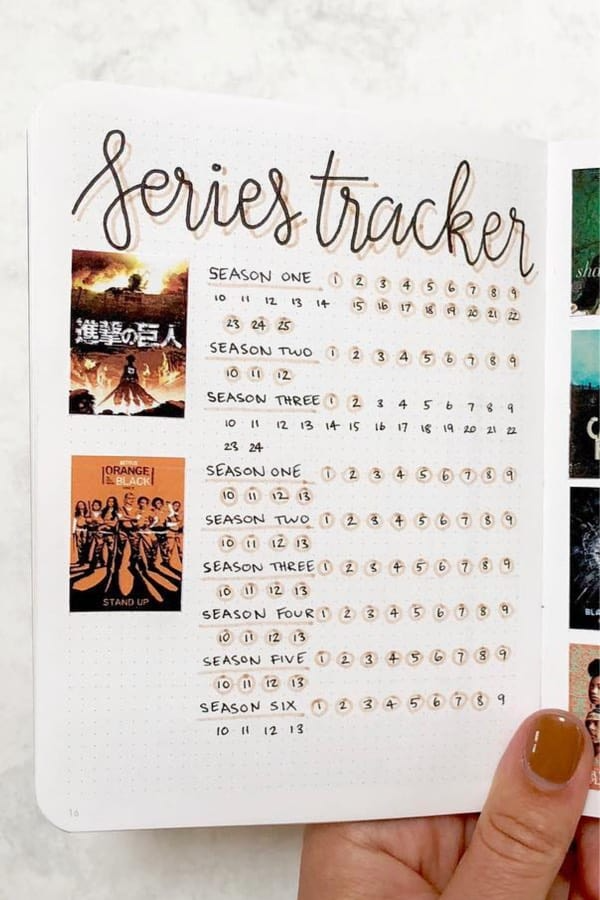 series tracker
進撃の巨人
SEASON ONE 1 2 3 4 5 6 7 8 9
10 11 12 13 14 15 16 17 18 19 20 21 22
23 24 25
SEASON TWO 1 2 3 4 5 6 7 8 9
10 11 12
SEASON THREE 1 2 3 4 5 6 7 8 9
10 11 12 13 14 15 16 17 18 19 20 21 22
23 24
NETFLIX
ORANGE
IS THE NEW
BLACK
STAND UP
SEASON ONE 1 2 3 4 5 6 7 8 9
10 11 12 13
SEASON TWO 1 2 3 4 5 6 7 8 9
10 11 12 13
SEASON THREE 1 2 3 4 5 6 7 8 9
10 11 12 13
SEASON FOUR 1 2 3 4 5 6 7 8 9
10 11 12 13
SEASON FIVE 1 2 3 4 5 6 7 8 9
10 11 12 13
SEASON SIX 1 2 3 4 5 6 7 8 9
10 11 12 13
16
sha
BLA